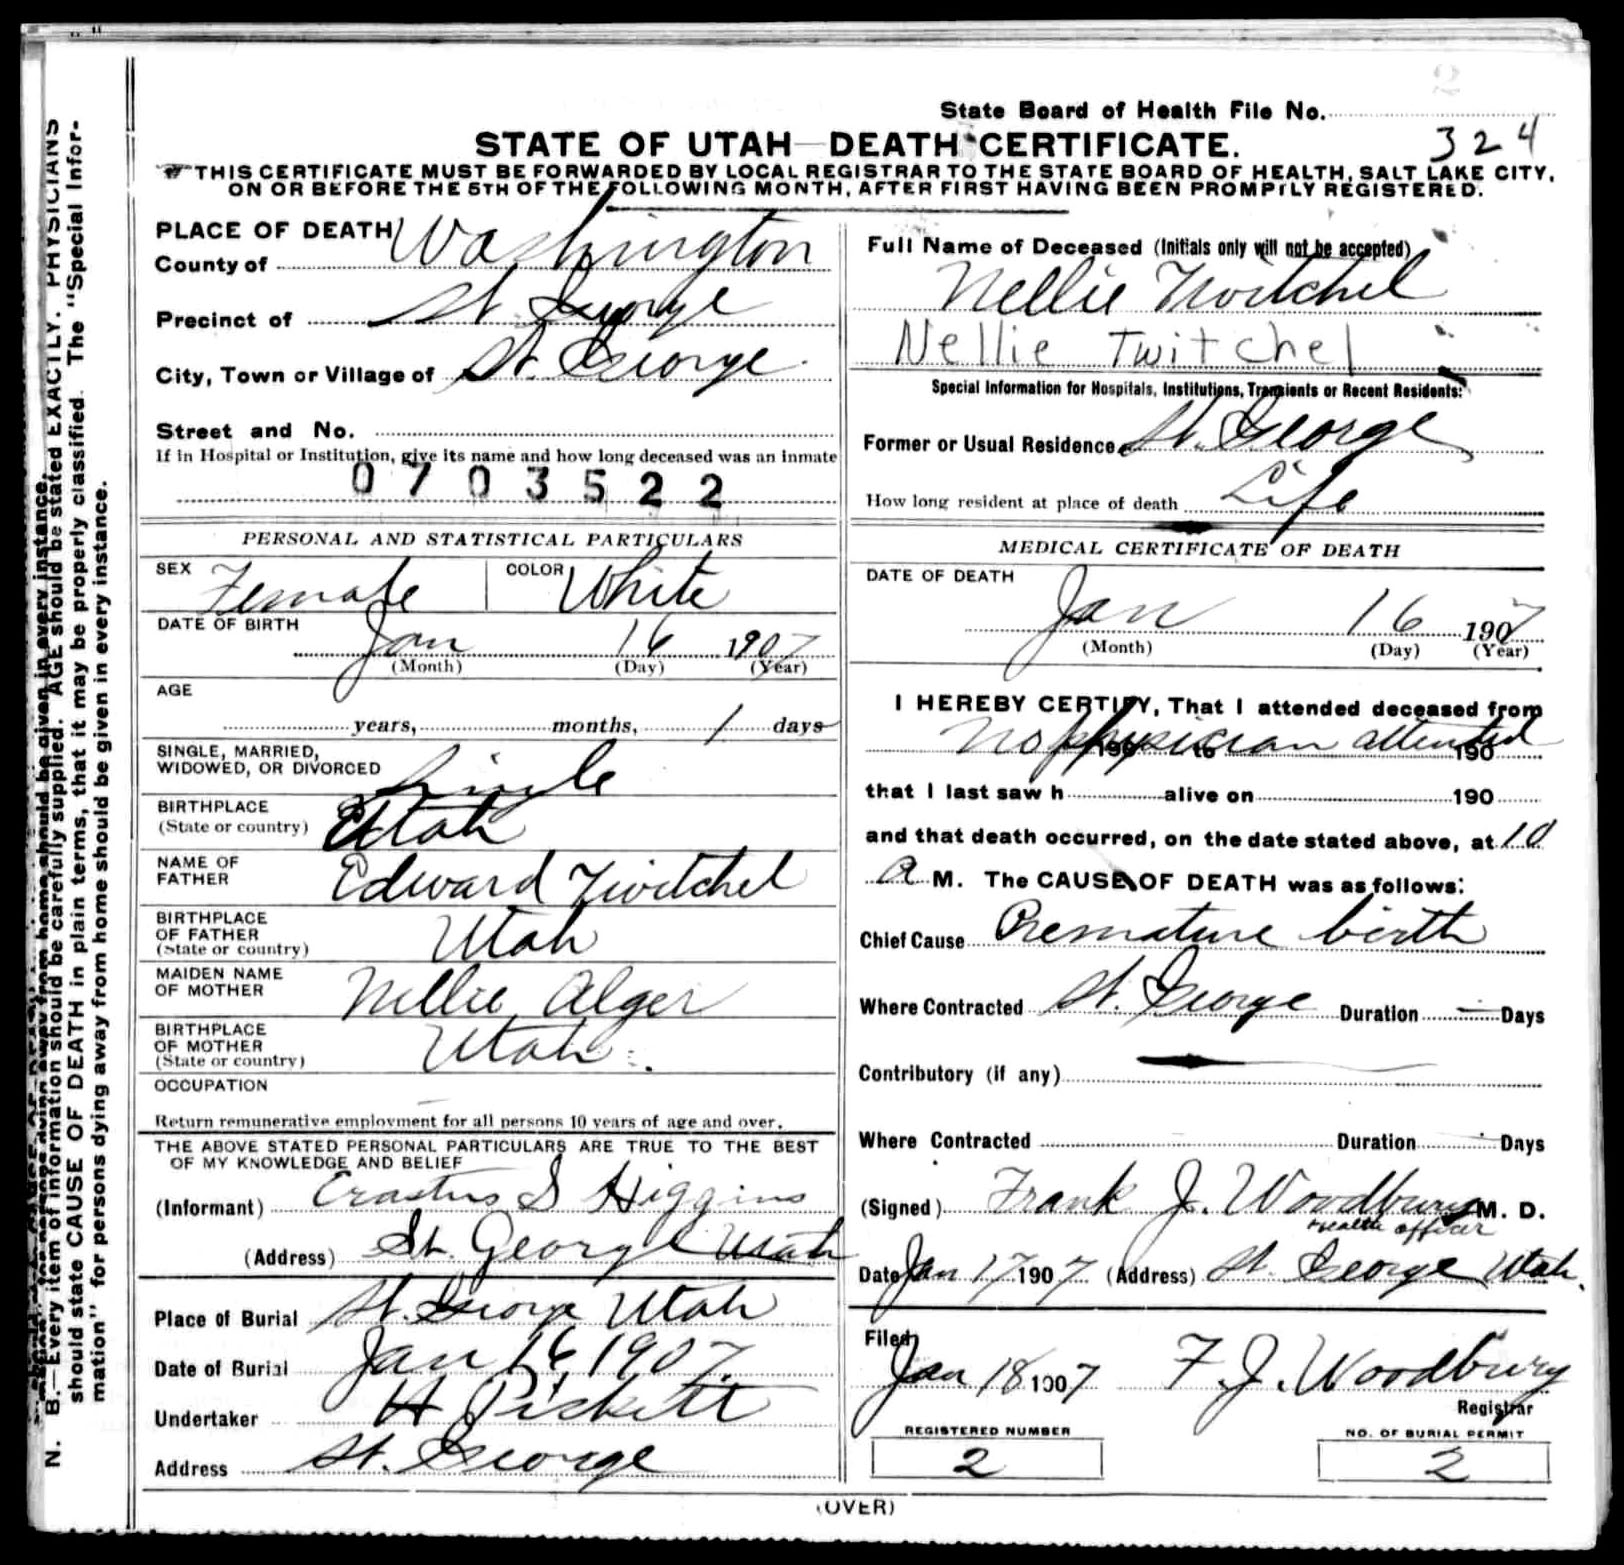 State Board of Health File No.
324
STATE OF UTAH—DEATH CERTIFICATE.
THIS CERTIFICATE MUST BE FORWARDED BY LOCAL REGISTRAR TO THE STATE BOARD OF HEALTH, SALT LAKE CITY,
ON OR BEFORE THE 5TH OF THE FOLLOWING MONTH, AFTER FIRST HAVING BEEN PROMPTLY REGISTERED.
PLACE OF DEATH
County of Washington
Precinct of St George
City, Town or Village of St. George
Street and No.
If in Hospital or Institution, give its name and how long deceased was an inmate
0703522
PERSONAL AND STATISTICAL PARTICULARS
SEX Female COLOR White
DATE OF BIRTH
Jan 16 1907
(Month) (Day) (Year)
AGE
years, months, 1 days
SINGLE, MARRIED,
WIDOWED, OR DIVORCED Single
BIRTHPLACE
(State or country) Utah
NAME OF
FATHER Edward Twitchel
BIRTHPLACE
OF FATHER
(State or country) Utah
MAIDEN NAME
OF MOTHER Nellie Alger
BIRTHPLACE
OF MOTHER
(State or country) Utah.
OCCUPATION
Return remunerative employment for all persons 10 years of age and over.
THE ABOVE STATED PERSONAL PARTICULARS ARE TRUE TO THE BEST
OF MY KNOWLEDGE AND BELIEF
(Informant) Erastus S Higgins
(Address) St. George Utah
Place of Burial St. George Utah
Date of Burial Jan 16 1907
Undertaker H Pickett
Address St. George
Full Name of Deceased (Initials only will not be accepted)
Nellie Twitchel
Nellie Twitchel
Special Information for Hospitals, Institutions, Transients or Recent Residents:
Former or Usual Residence St. George
How long resident at place of death Life
MEDICAL CERTIFICATE OF DEATH
DATE OF DEATH
Jan 16 1907
(Month) (Day) (Year)
I HEREBY CERTIFY, That I attended deceased from
No physician attended
190 to 190
that I last saw h alive on 190
and that death occurred, on the date stated above, at 10
a M. The CAUSE OF DEATH was as follows:
Chief Cause Premature birth
Where Contracted St. George Duration — Days
Contributory (if any)
Where Contracted Duration Days
(Signed) Frank J. Woodbury M. D.
Health officer
Date Jan 17 1907 (Address) St. George Utah.
Filed
Jan 18 1907 F. J. Woodbury
Registrar
REGISTERED NUMBER
2
NO. OF BURIAL PERMIT
2
(OVER)
N. B.—Every item of information should be carefully supplied. AGE should be stated EXACTLY. PHYSICIANS
should state CAUSE OF DEATH in plain terms, that it may be properly classified. The "Special Infor-
mation" for persons dying away from home should be given in every instance.